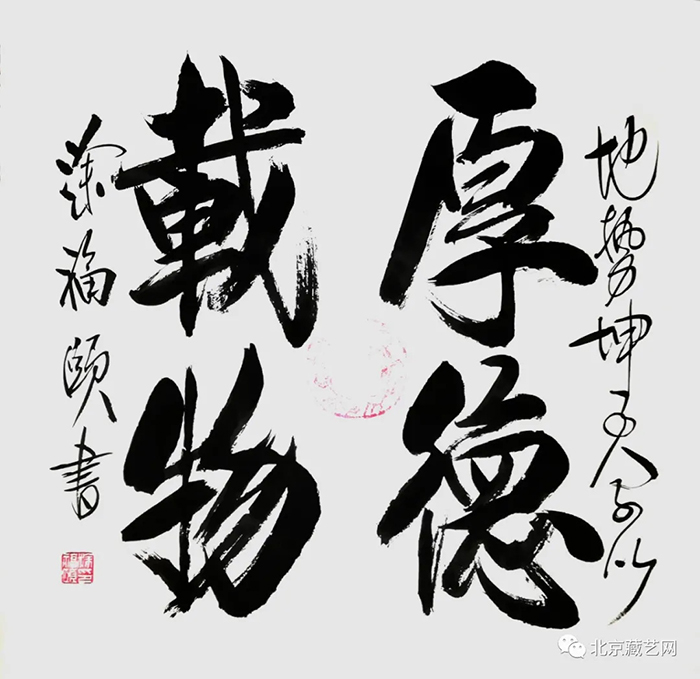 地勢坤君子以
厚德
載物
福頤書
北京藏艺网